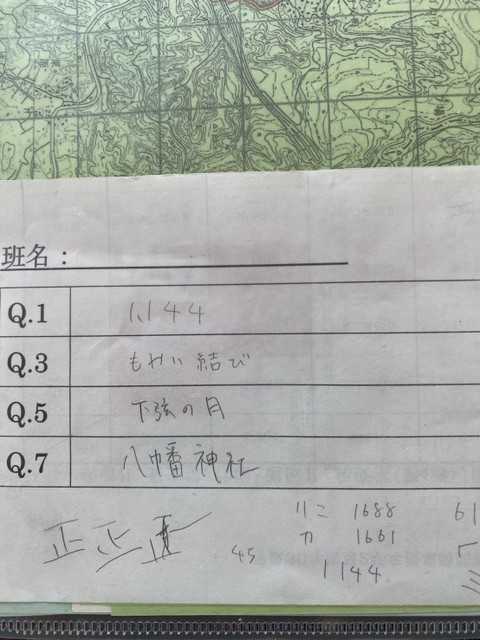 班名：
Q.1 1,144
Q.3 もやい結び
Q.5 下弦の月
Q.7 八幡神社
正正正
リニ 1688
カ 1661
45
1144
61